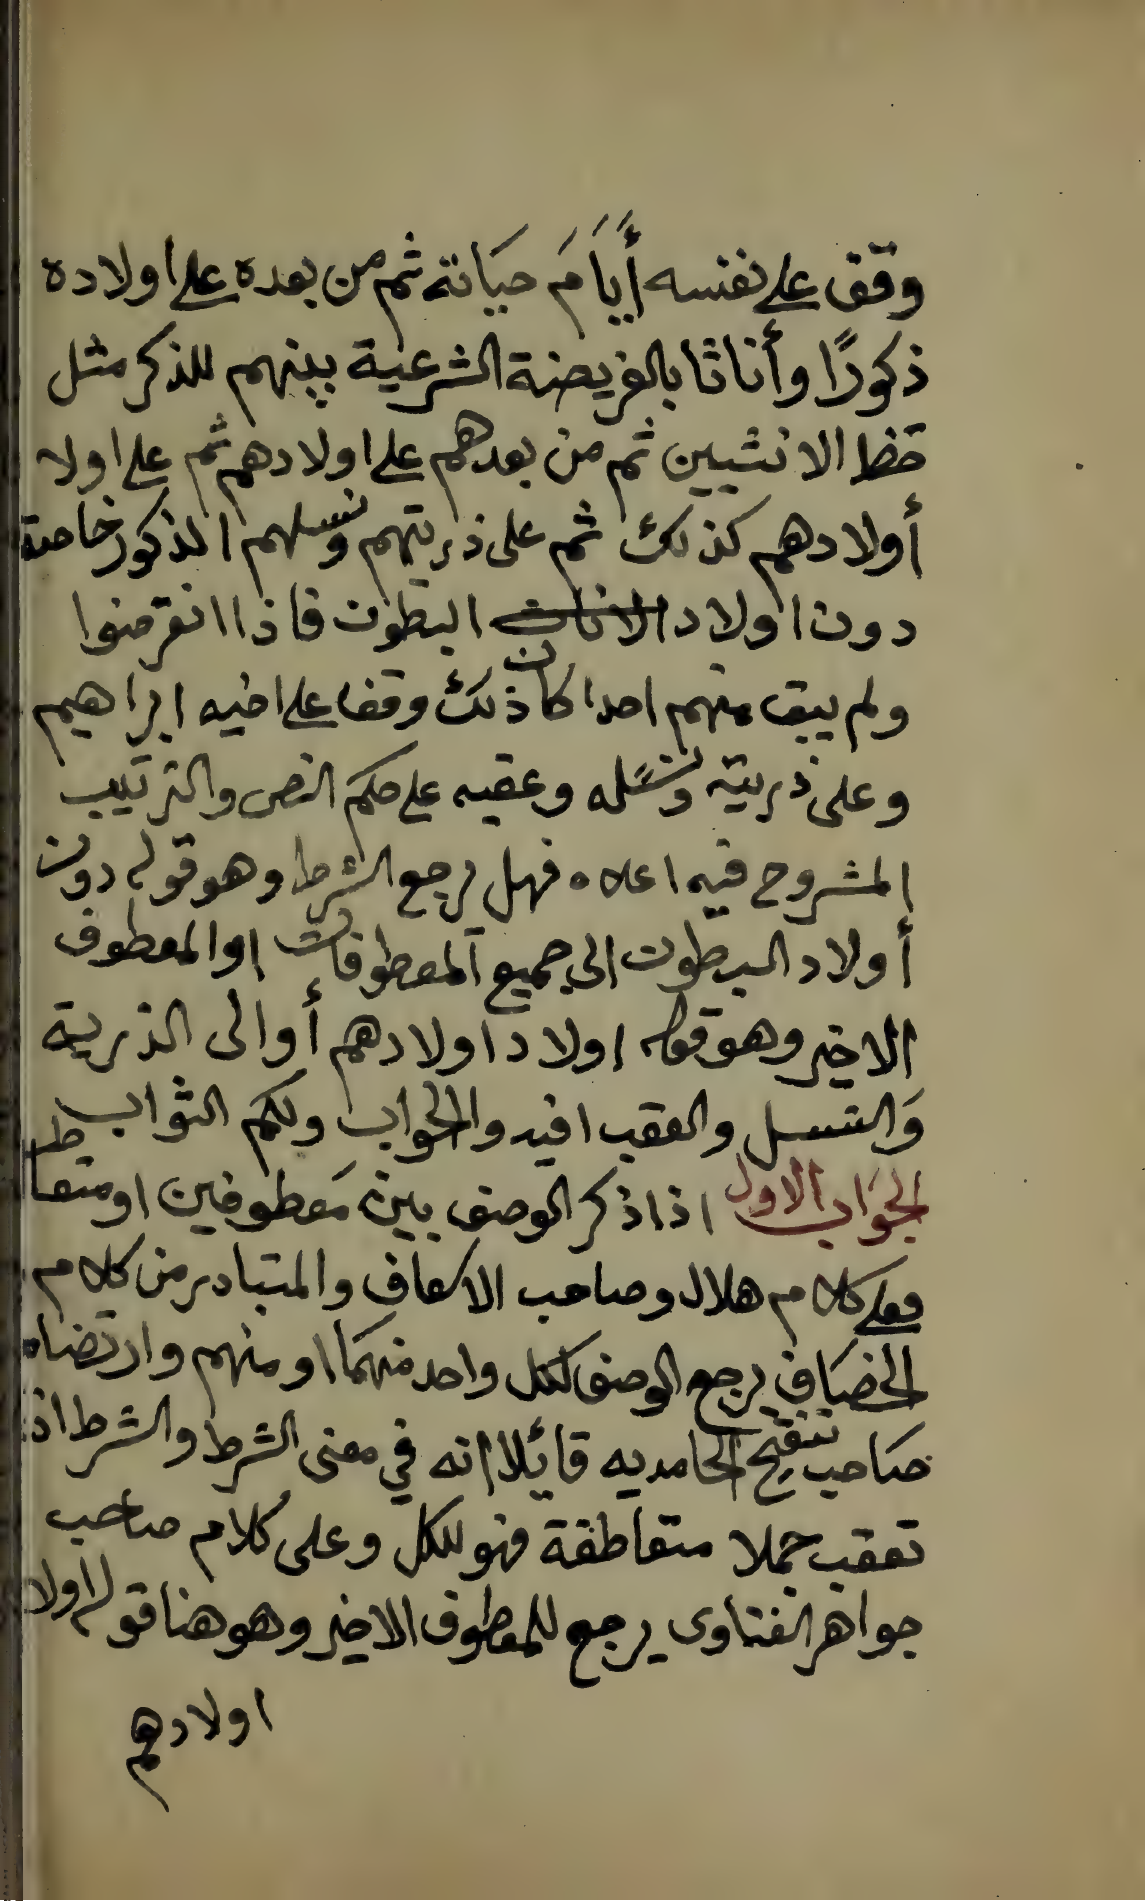 وقف على نفسه أيَامَ حيَاته ثم من بعده على اولاده
ذكورًا وأناثا بالفريضة الشرعية بينهم للذكر مثل
حظ الانثيين ثم من بعدهم على اولادهم ثم على اولا
أولادهم كذلك ثم على ذريتهم ونسلهم الذكور خاصة
دون اولاد الاناث البطون فاذا انقرضوا
ولم يبق منهم احدا كان ذلك وقفا على اخيه ابراهيم
وعلى ذريته ونسَله وعقبه على حكم النص والترتيب
المشروح فيه اعلاه فهل يرجع الشرط وهو قوله دون
أولاد البطون الى جميع المعطوفات او المعطوف
الاخير وهو قوله اولاد اولادهم أو الى الذرية
وَالنسل والعقب افيدوا الجواب ولكم الثواب
الجوَاب الاول اذا ذكر الوصف بين مَعطوفين او متعاطـ
فعلى كلام هلال وصاحب الاسعاف والمتبادر من كلام
الخصَاف يرجع الوصف لكل واحد منهمَا او منهم وارتضاه
صَاحب تنقيح الحامديه قائلا انه في معنى الشرط والشرط اذا
تعقب جملا متعاطفة فهو للكل وعلى كلام صاحب
جواهر الفتاوى يرجع للمعطوف الاخير وهو هنا قوله اولا
اولادهم